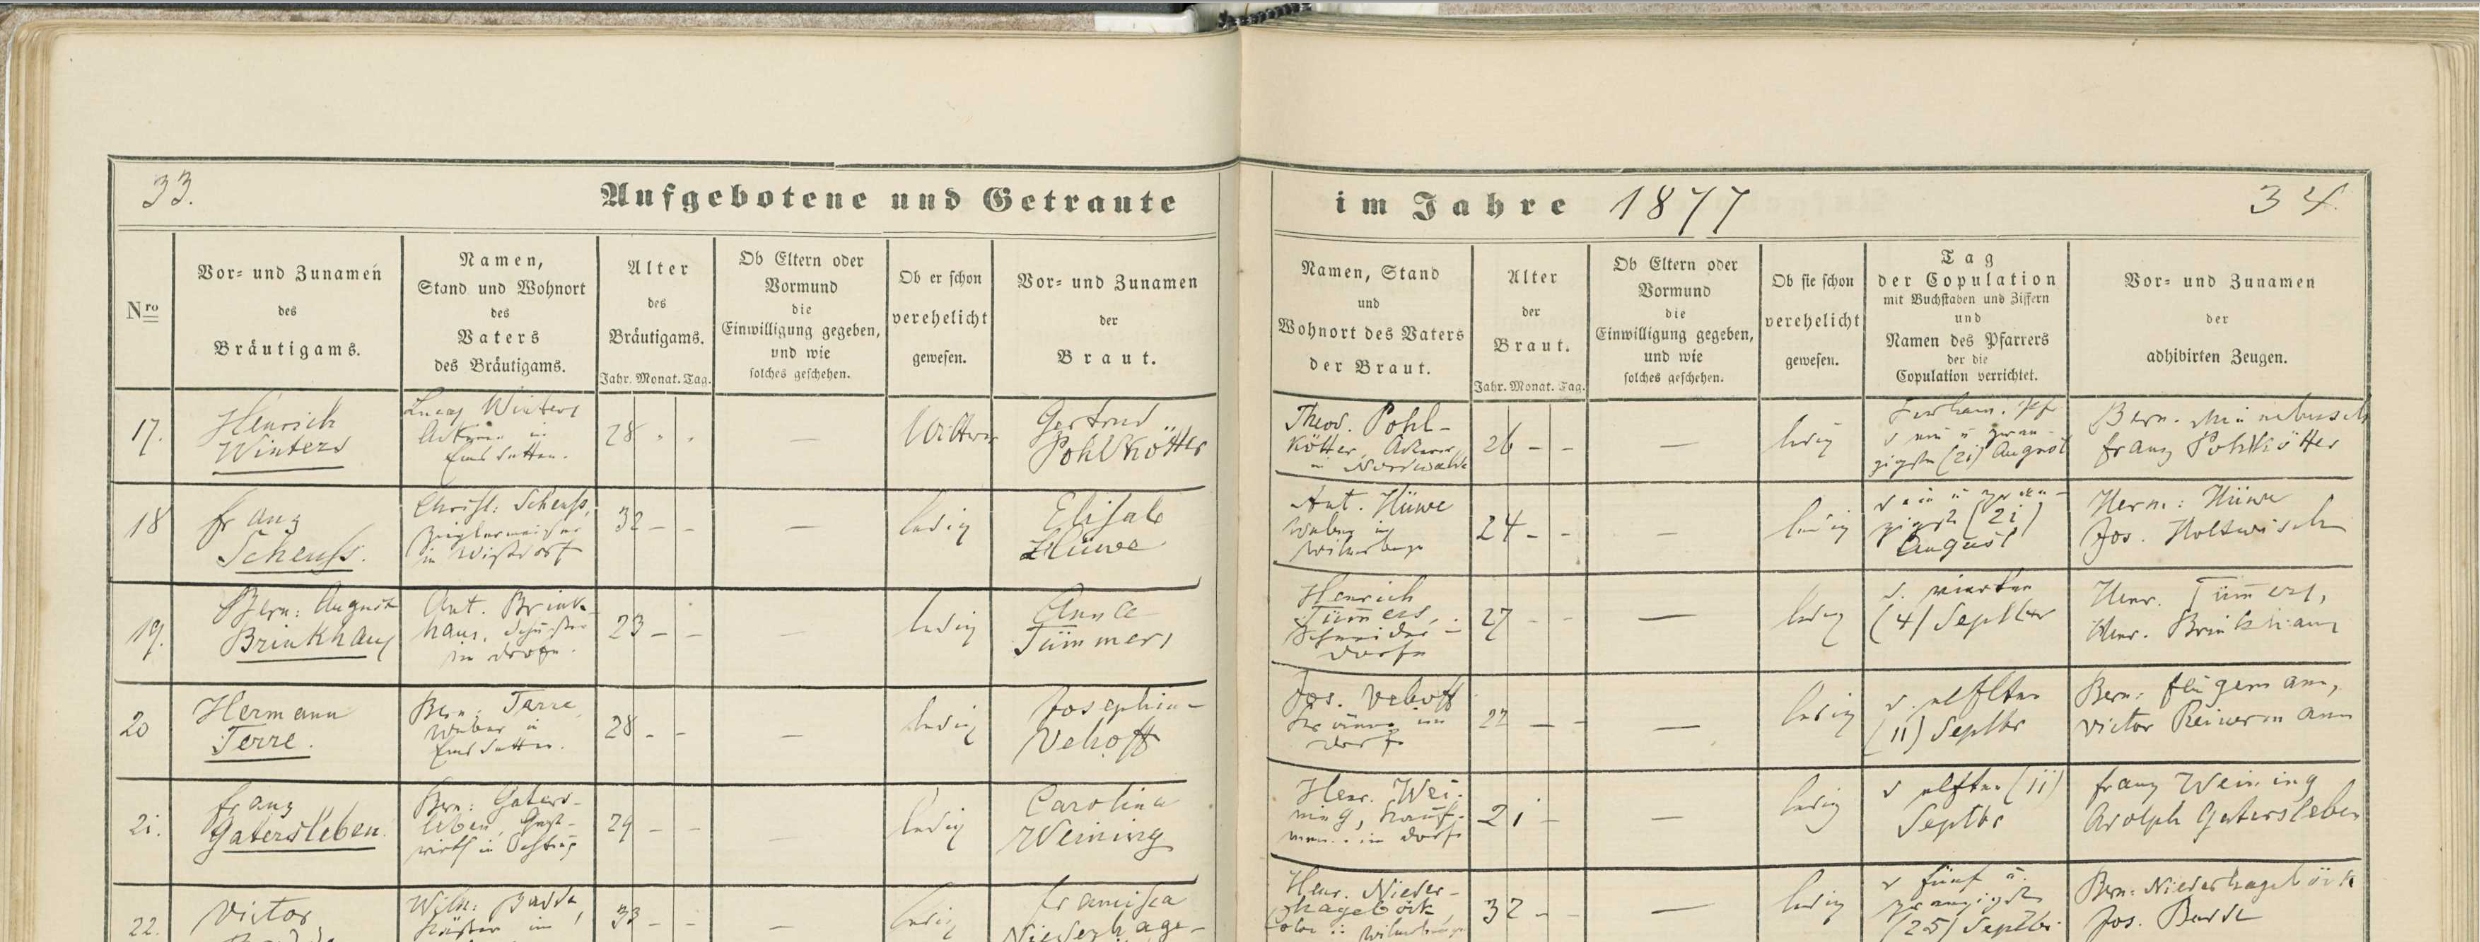 33.
Aufgebotene und Getraute
im Jahre 1877
34.
Nro
Vor- und Zunamen
des
Bräutigams.
Namen,
Stand und Wohnort
des
Vaters
des Bräutigams.
Alter
des
Bräutigams.
Jahr. Monat. Tag.
Ob Eltern oder
Vormund
die
Einwilligung gegeben,
und wie
solches geschehen.
Ob er schon
verehelicht
gewesen.
Vor- und Zunamen
der
Braut.
Namen, Stand
und
Wohnort des Vaters
der Braut.
Alter
der
Braut.
Jahr. Monat. Tag.
Ob Eltern oder
Vormund
die
Einwilligung gegeben,
und wie
solches geschehen.
Ob sie schon
verehelicht
gewesen.
Tag
der Copulation
mit Buchstaben und Ziffern
und
Namen des Pfarrers
der die
Copulation verrichtet.
Vor- und Zunamen
der
adhibirten Zeugen.
17.
Henrich
Winters
Winters
in
Emsdetten.
28
—
Wittwer
Gertrud
Pohlkötter
Theod. Pohl-
kötter, Ackerer
in Nordwalde
26 - -
—
ledig
zigsten (21) August
Bern.
Franz Pohlkötter
18
Franz
Scheuß.
Christ: Scheuß,
Zieglermeister
in
32 - -
—
ledig
Elisab
Hüwe
Ant. Hüwe
Weber in
24 - -
—
ledig
d ein u zwan-
zigst (21)
August
Herm: Hüwe
Jos. Holtwisch
19.
Bern: August
Brinkhaus
Ant. Brink-
haus,
im Dorfe.
23 - -
—
ledig
Anna
Tümmers
Henrich
Tümmers,
Schneider -
Dorfe
27 - -
—
ledig
d. vierten
(4) Septbr
Henr. Tümmers,
Henr. Brinkhaus
20
Hermann
Terre.
Bern. Terre
Weber in
Emsdetten.
28 - -
—
ledig
Josephin-
Vehoff
Jos. Vehoff
im
Dorf
22 - -
—
ledig
d. elften
(11) Septbr
Bern: Flügemann,
Victor Reinermann
21.
Franz
Gatersleben.
Bern: Gaters-
leben, Gast-
wirth in Ochtrup
29 - -
—
ledig
Carolina
Weining
Henr. Wei-
ning, Kauf-
mann im Dorfe
21 -
—
ledig
d elften (11)
Septbr
Franz Weining
Adolph Gatersleben
22.
Victor
Wilh: Badde,
Küster im
33 - -
—
ledig
Francisca
Niederhage-
Henr. Nieder-
hageböck,
32 -
—
ledig
d fünf u.
zwanzigsten
(25) Septbr.
Bern: Niederhageböck
Jos. Badde